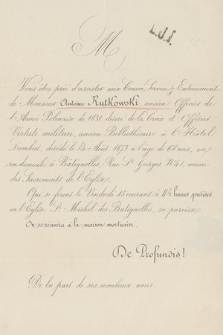 M
Vous êtes prié d'assister aux Convoi, Service & Enterrement
de Monsieur Antoine Rutkowski, ancien Officier de
l'Armée Polonaise de 1831, décoré de la Croix d'Officier
Virtuti militari, ancien Bibliothécaire à l'Hôtel
Lambert, décédé le 14 Août 1873 à l'âge de ans, en
son domicile à Batignolles, Rue St Georges No 41, muni
des Sacrements de l'Eglise.
Qui se feront le Vendredi 15 courant à heures précises
en l'Eglise St Michel des Batignolles, sa paroisse.
On se réunira à la maison mortuaire.
De Profundis!
De la part de ses nombreux amis.